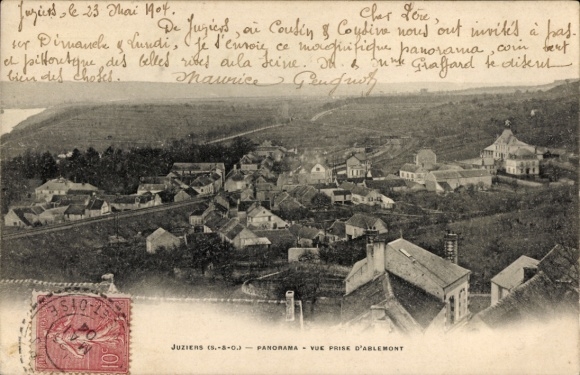 Juziers, le 23 Mai 1904.
Cher Père,
De Juziers, où Cousin & Cousine nous ont invités à pas-
ser Dimanche & Lundi, je t'envoie ce magnifique panorama, coin vert
et pittoresque des belles rives de la Seine. Mr & Mme Graffard te disent
bien des choses.
Maurice
JUZIERS (S.-&-O.) — PANORAMA - VUE PRISE D'ABLEMONT
10